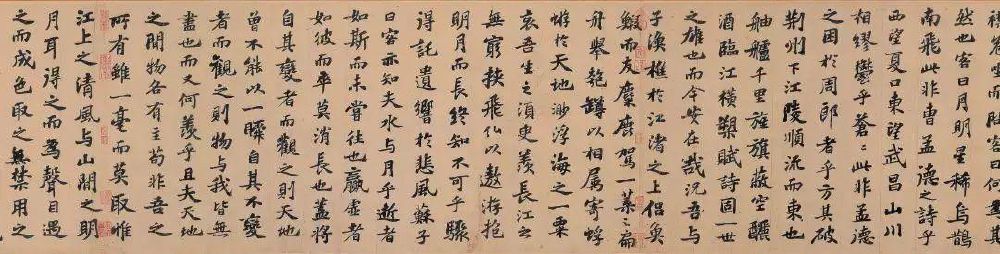 襟危坐而問客曰何為其
然也客曰月明星稀烏鵲
南飛此非曹孟德之詩乎
西望夏口東望武昌山川
相繆鬱乎蒼〻此非孟德
之困於周郎者乎方其破
荊州下江陵順流而東也
舳艫千里旌旗蔽空釃
酒臨江橫槊賦詩固一世
之雄也而今安在哉況吾與
子漁樵於江渚之上侶魚
鰕而友麋鹿駕一葉之扁
舟舉匏罇以相屬寄蜉
蝣於天地渺浮海之一粟
哀吾生之須臾羨長江之
無窮挾飛仙以遨游抱
明月而長終知不可乎驟
得託遺響於悲風蘇子
曰客亦知夫水與月乎逝者
如斯而未嘗往也贏虛者
如彼而卒莫消長也蓋將
自其變者而觀之則天地
曾不能以一瞬自其不變
者而觀之則物與我皆無
盡也而又何羨乎且夫天地
之間物各有主苟非吾之
所有雖一毫而莫取惟
江上之清風與山間之明
月耳得之而為聲目遇
之而成色取之無禁用之